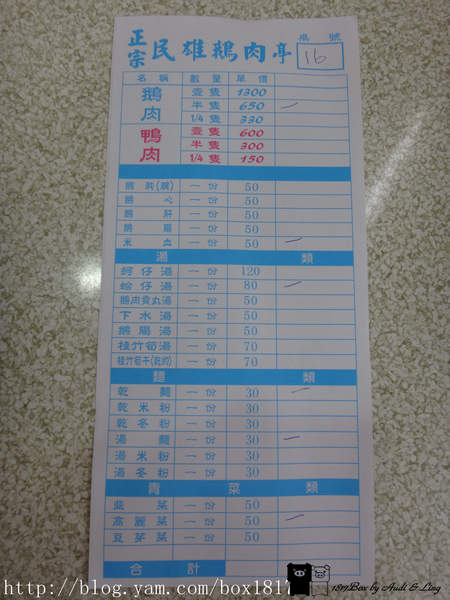 正宗民雄鵝肉亭 桌號 16
名稱 數量 單價
鵝肉 壹隻 1300
半隻 650
1/4隻 330
鴨肉 壹隻 600
半隻 300
1/4隻 150
鵝胗(腱) 一份 50
鵝心 一份 50
鵝肝 一份 50
鵝腸 一份 50
米血 一份 50
湯類
蚵仔湯 一份 120
蛤仔湯 一份 80
鵝肉貢丸湯 一份 50
下水湯 一份 50
鵝腸湯 一份 50
桂竹筍湯 一份 70
桂竹筍干(乾的) 一份 70
麵類
乾麵 一份 30
乾米粉 一份 30
乾冬粉 一份 30
湯麵 一份 30
湯米粉 一份 30
湯冬粉 一份 30
青菜類
韮菜 一份 50
高麗菜 一份 50
豆芽菜 一份 50
合計
http://blog.yam.com/box1817
1817Box by Audi & Ling